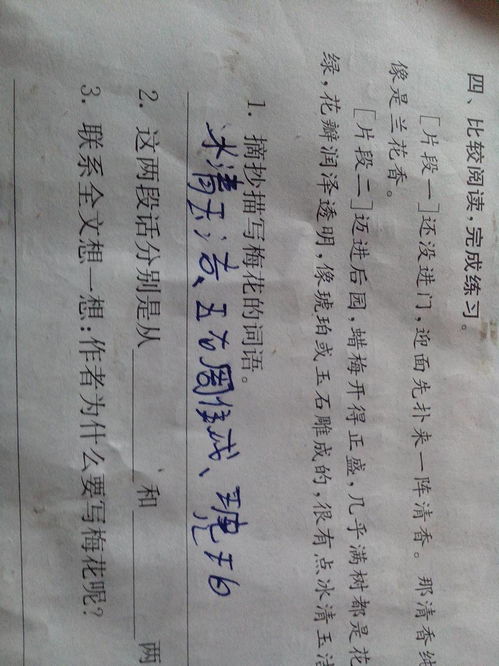 四、比较阅读,完成练习。
[片段一]还没进门,迎面先扑来一阵清香。那清香纯
像是兰花香。
[片段二]迈进后园,蜡梅开得正盛,几乎满树都是花
绿,花瓣润泽透明,像琥珀或玉石雕成的,很有点冰清玉洁
1. 摘抄描写梅花的词语。
冰清玉洁、玉石雕成、琥珀
2. 这两段话分别是从______、和______两
3. 联系全文想一想:作者为什么要写梅花呢?